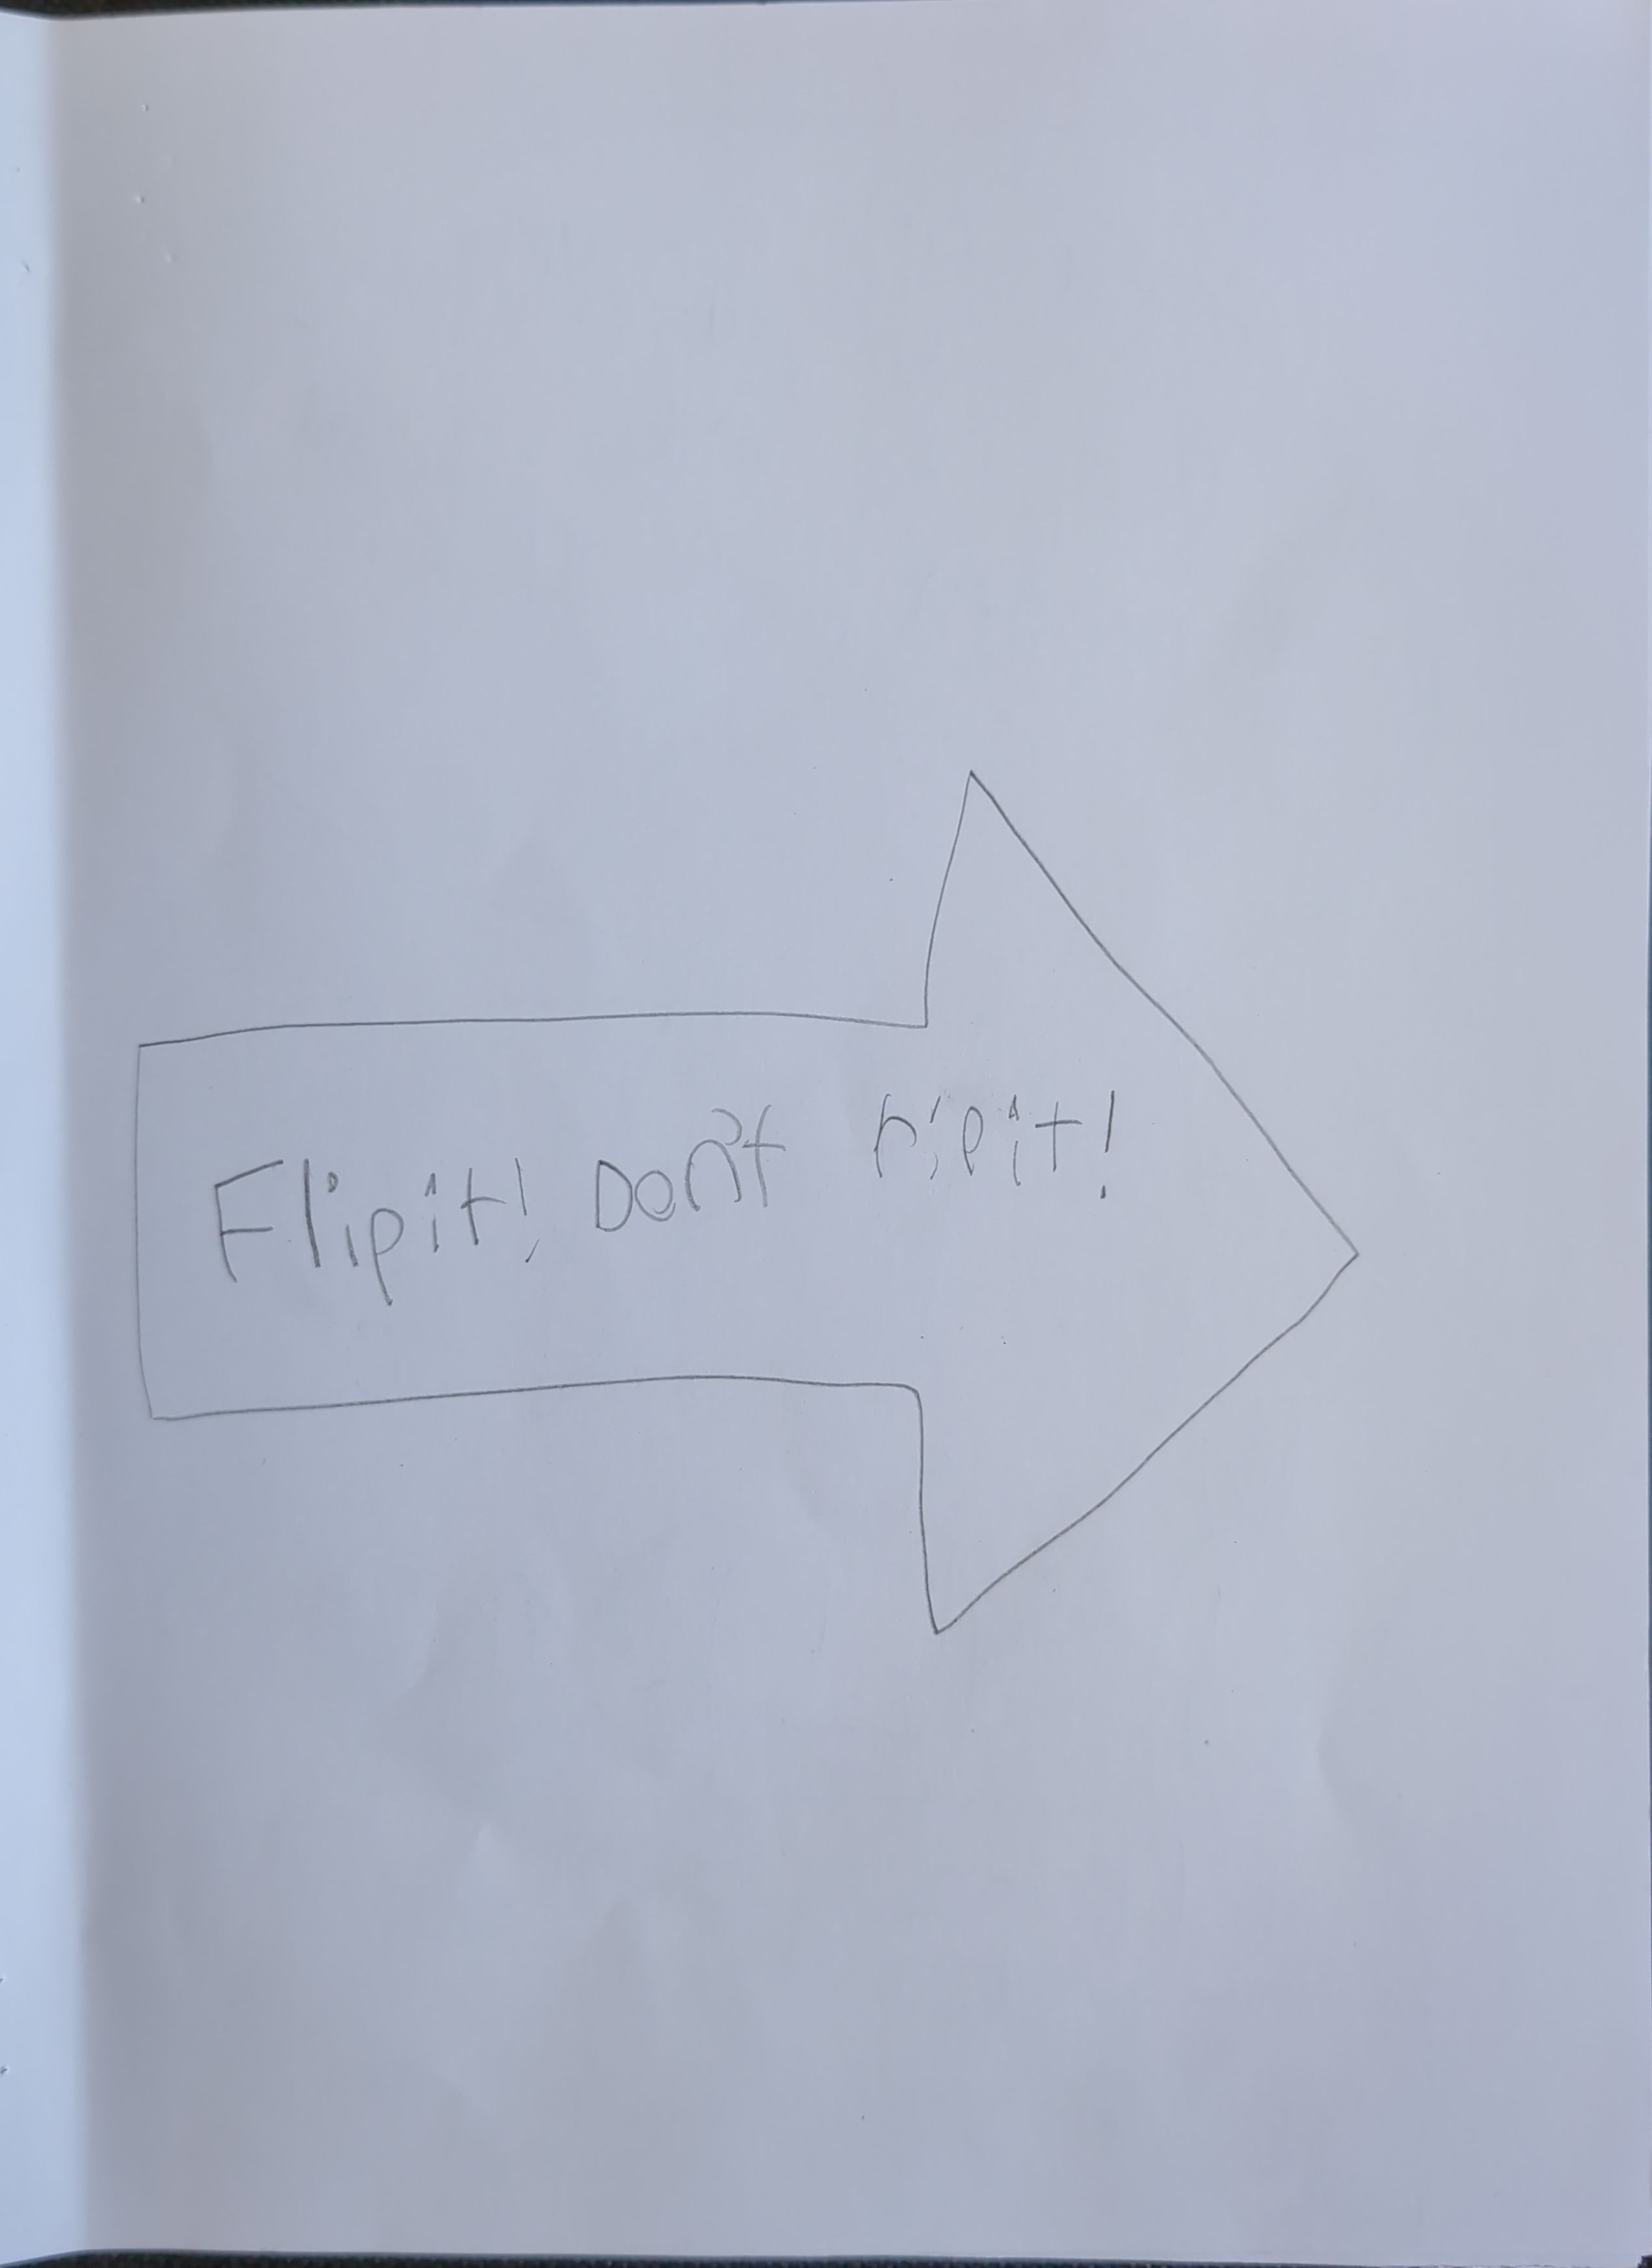 Flip it! Don't rip it!